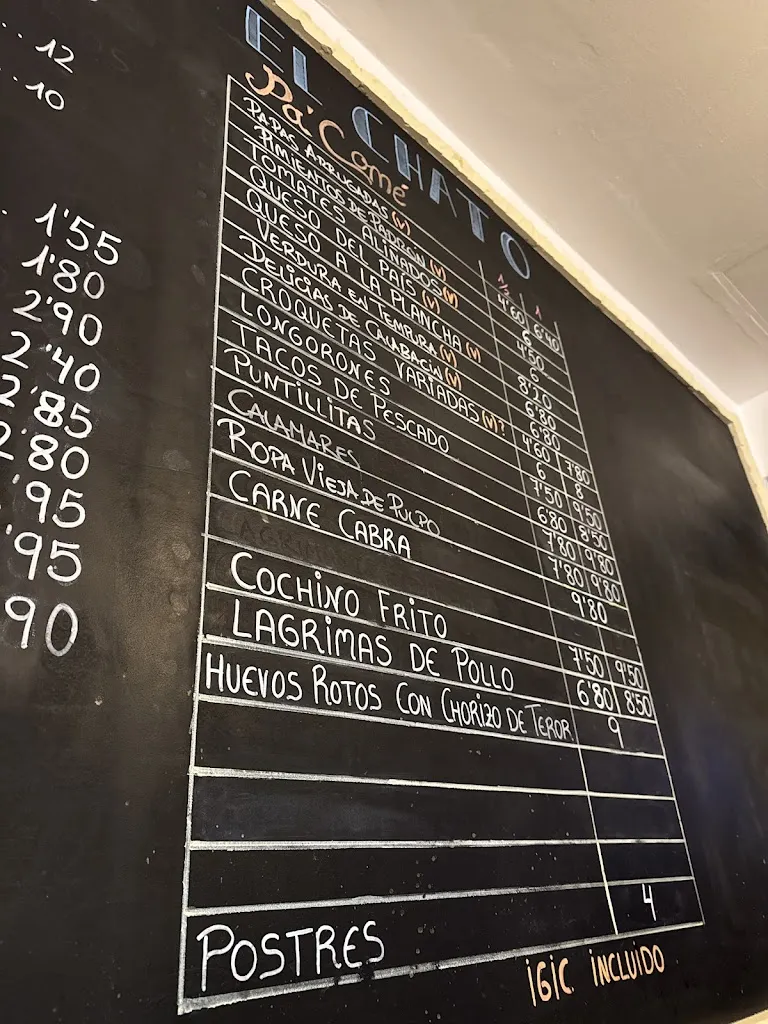 .. 12
.. 10
1'55
1'80
2'90
2'40
2'85
2'80
'95
'95
90
EL CHATO
Pa' Comé
½ 1
PAPAS ARRUGADAS (V) 4'60 6'40
PIMIENTOS DE PADRÓN (V) 6
TOMATES ALIÑADOS (V) 4'50
QUESO DEL PAÍS (V) 6
QUESO A LA PLANCHA (V) 8'20
VERDURA EN TEMPURA (V) 6'80
DELICIAS DE CALABACÍN (V) 6'80
CROQUETAS VARIADAS (V)? 4'60 7'80
LONGORONES 6 8
TACOS DE PESCADO 7'50 9'50
PUNTILLITAS 6'80 8'50
CALAMARES 7'80 9'80
ROPA VIEJA DE PULPO 7'80 9'80
CARNE CABRA 9'80
COCHINO FRITO 7'50 9'50
LAGRIMAS DE POLLO 6'80 8'50
HUEVOS ROTOS CON CHORIZO DE TEROR 9
POSTRES 4
IGIC INCLUIDO